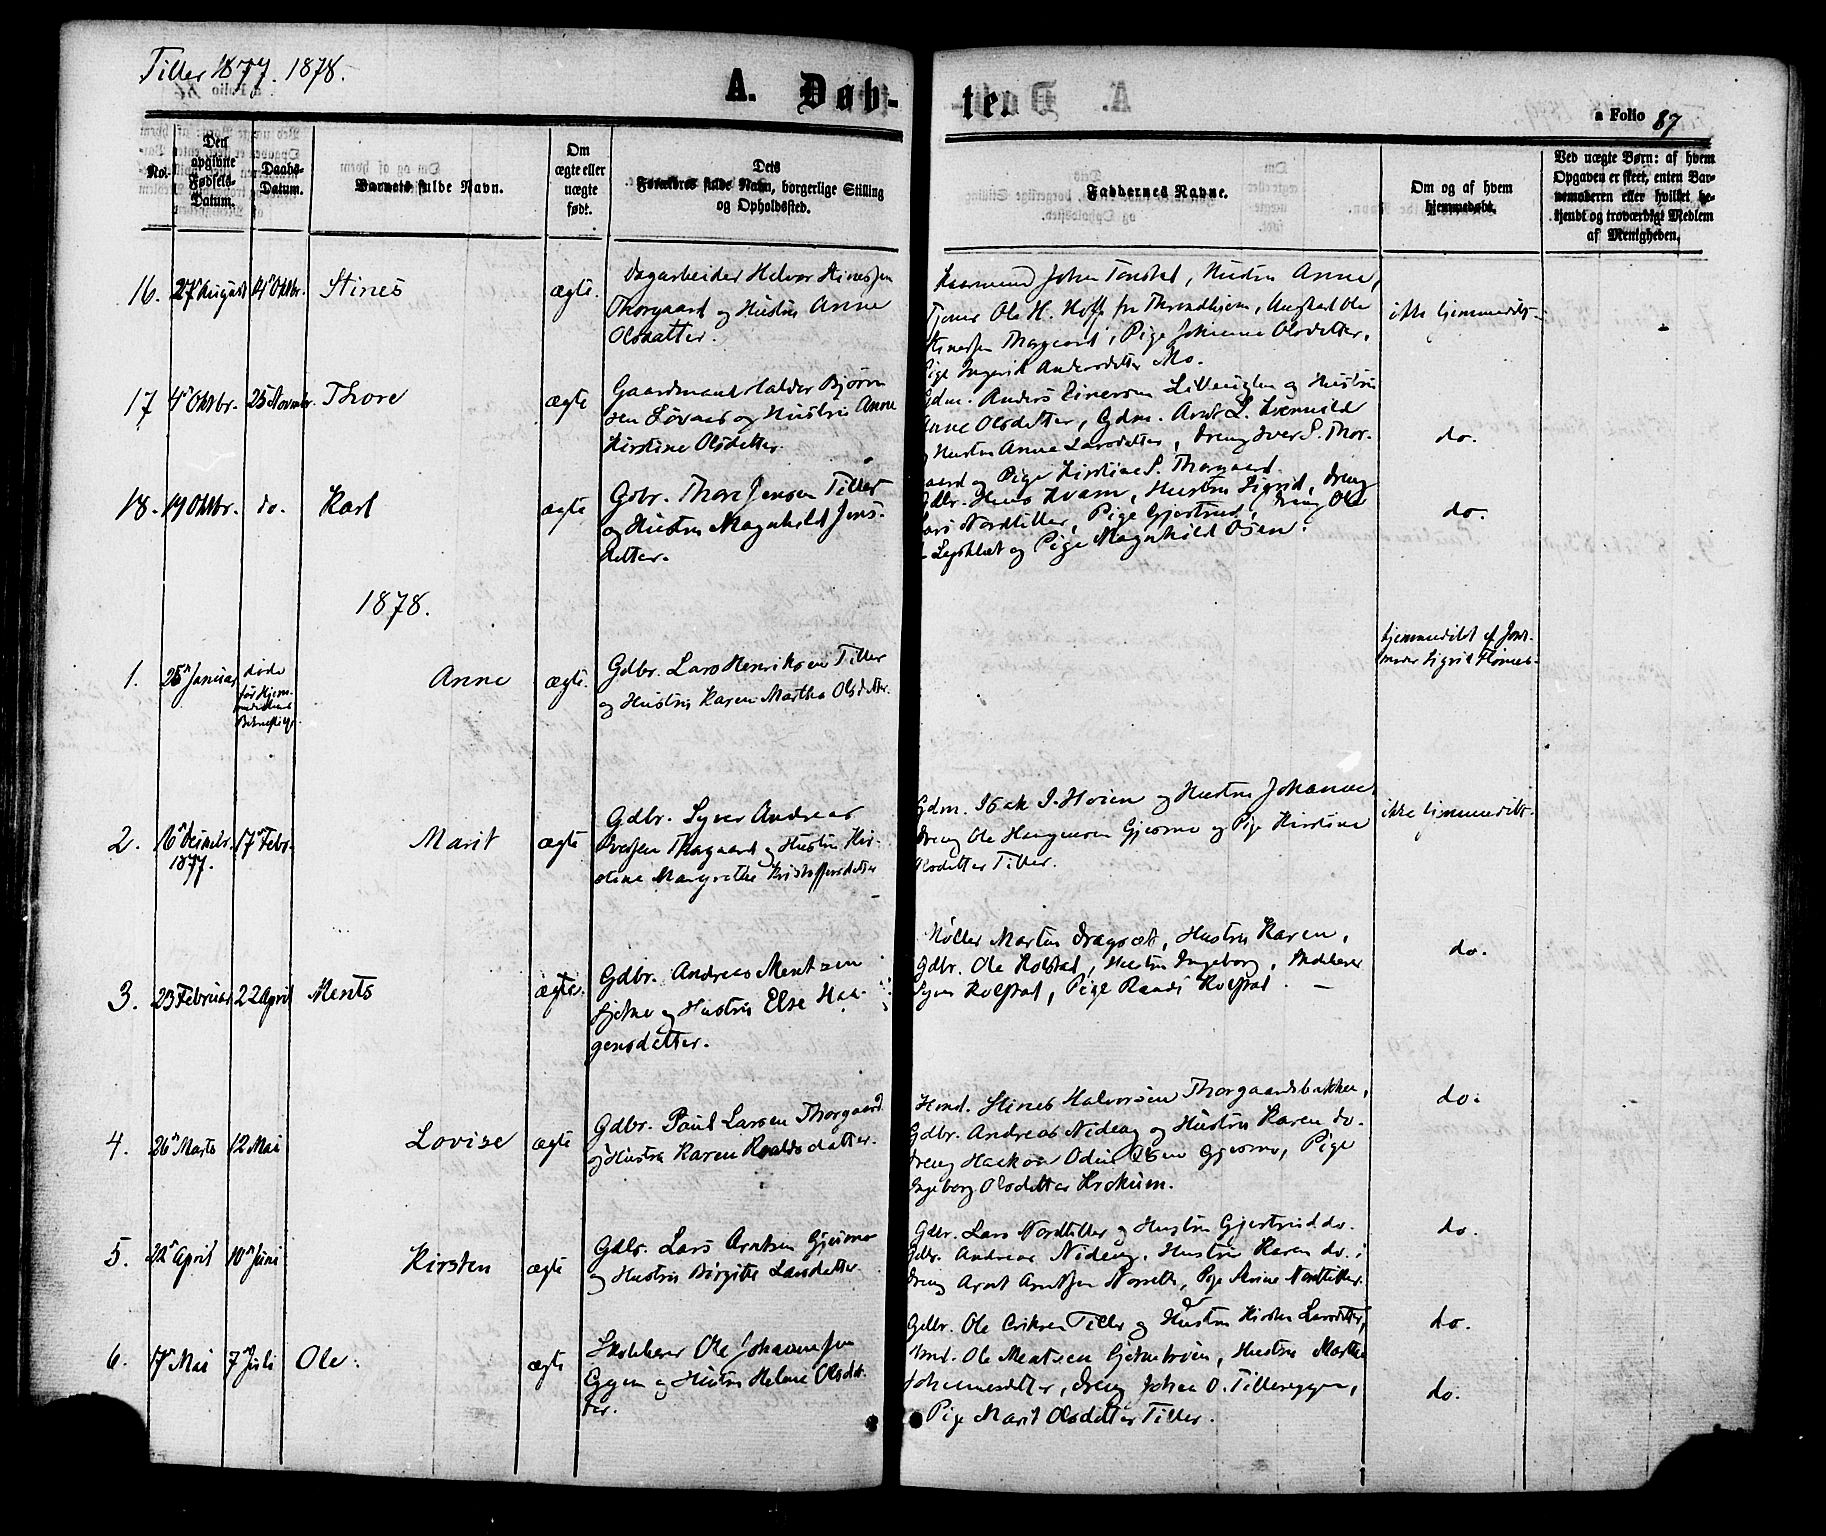 Tiller 1877. 1878.
A. Døb-
ten
a Folio 87
No.
Den opgivne Fødsels-Datum.
Daabs-Datum.
Barnets fulde Navn.
Om ægte eller uægte født.
Dets Forældres fulde Navn, borgerlige Stilling og Opholdssted.
Faddernes Navne.
Om og af hvem hjemmedøbt.
Ved uægte Børn: af hvem
Opgaven er skeet, enten Bar-
nemoderen eller hvilket be-
kjendt og troværdigt Medlem
af Menigheden.
16. 27 August 14 Oktbr. Stines ægte.
Dagarbeider Halvor Stinessen
Thorgaard og Hustru Anne
Olsdatter.
John Tonstad, Hustru Anne,
Tjener Ole H. Hoff fra Throndhjem, Ungkarl Ole
Stinessen Thorgaard, Pige Johanna Olsdatter,
Pige Ingerid Andersdatter Mo.
ikke hjemmedøbt.
17 4 Oktbr. 25 Novmbr. Thore ægte
Gaardmand Haldor Bjørn
sen Løvaas og Hustru Anne
Kirstine Olsdatter.
Gdm. Anders Einersen Lilleuglen og Hustru
Anne Olsdatter, Gdm. Arnt L. Kvenild
og Hustru Anne Larsdatter, Dreng Iver S. Thor-
gaard og Pige Kirstine S. Thorgaard.
do.
18. 19 Oktbr. do. Karl ægte
Gdbr. Thore Jensen Tiller
og Hustru Magnhild Jens-
datter.
Gdbr. Hans Kvam, Hustru Sigrid, Dreng
Lars Nordtiller, Pige Gjertrud, Dreng Ole
og Pige Magnhild Osen.
do.
1878.
1. 25 Januar
døde
før Hjem-
medaabens
Bekræftelse
Anne ægte.
Gdbr. Lars Henriksen Tiller
og Hustru Karen Martha Olsdatter.
hjemmedøbt af Jord-
moder Sigrid Flones.
2. 16 Decmbr.
1877.
17 Febr. Marit ægte
Gdbr. Syver Andreas
Iversen Thorgaard og Hustru Kir-
stine Margrethe Kristoffersdatter
Gdm. Isak J. Hoien og Hustru Johanna
Dreng Ole Haagensen Gjesmo og Pige Kirstine
Olsdatter Tiller.
ikke hjemmedøbt.
3. 23 Februar 22 April Ments ægte.
Gdbr. Andreas Mentzen
Sjetne og Hustru Else Haa-
gensdatter.
Møller Martin Dragsæt, Hustru Karen,
Gdbr. Ole Kolstad, Hustru Ingeborg,
Syver Kolstad, Pige Randi Kolstad.
do.
4. 26 Marts 12 Mai Lovise ægte
Gdbr. Paul Larsen Thorgaard
og Hustru Karen Roaldsdatter.
Hmd. Stines Halvorsen Thorgaardsbakken,
Gdbr. Andreas Nideng og Hustru Karen do.
Dreng Haakon Odin Olsen Gjesmo, Pige
Ingeborg Olsdatter Krokum.
do.
5. 22 April 10 Juni Kirsten ægte
Gdbr. Lars Arntsen Gjesmo
og Hustru Birgitte Larsdatter
Gdbr. Lars Nordtiller og Hustru Gjertrud do.
Gdbr. Andreas Nideng, Hustru Karen do.
Dreng Arnt Arntsen Norseth, Pige Stine Nordtiller.
do.
6. 17 Mai 7 Juli Ole. ægte
Skolelærer Ole Johannesen
Eggen og Hustru Helene Olsdat-
ter.
Gdbr. Ole Eriksen Tiller og Hustru Kirsten Larsdatter,
Hmd. Ole Mentsen Sjetnetrøen, Hustru Martha
Johannesdatter, Dreng Johan O. Tillereggen,
Pige Marit Olsdatter Tiller.
do.
do.